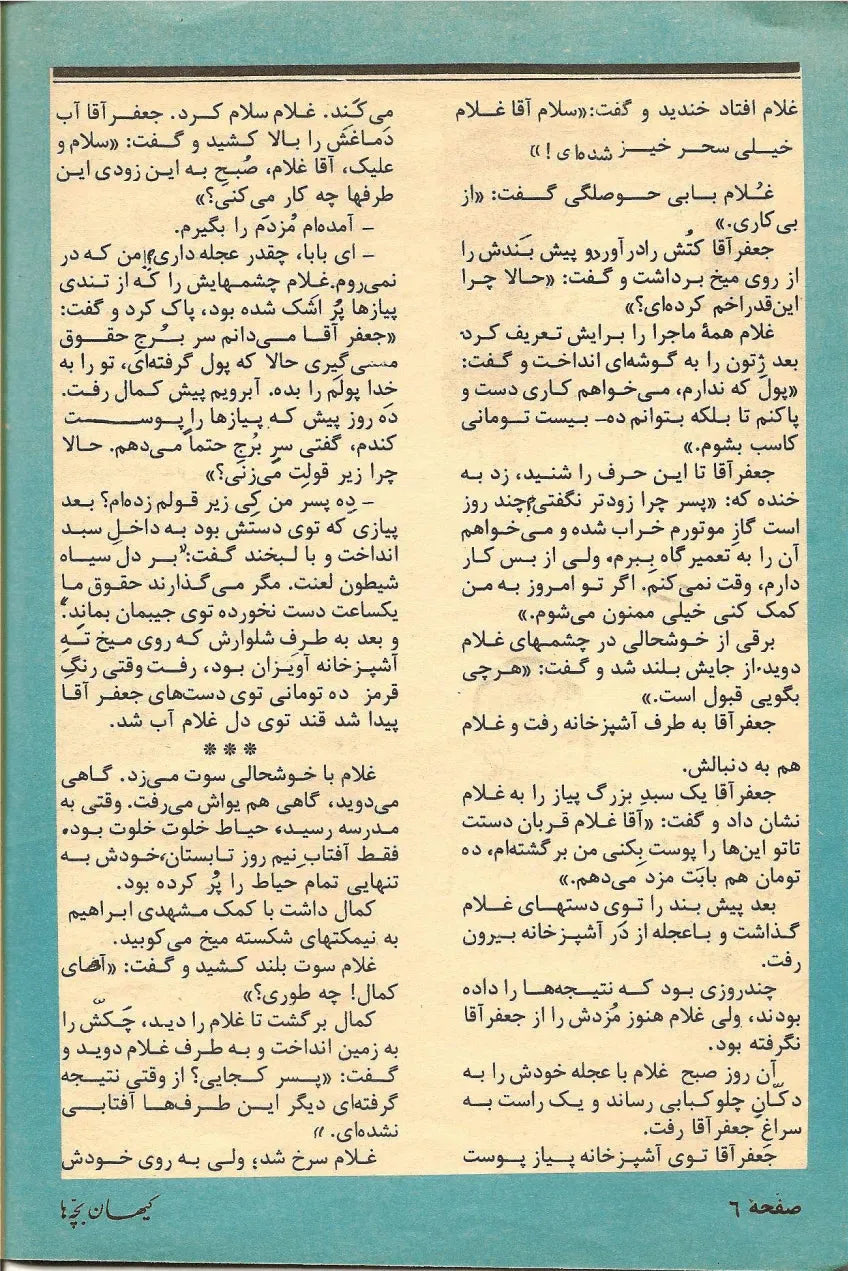 غلام افتاد خندید و گفت:«سلام آقا غلام
خیلی سحر خیز شده‌ای!»
غُلام بابی حوصلگی گفت: «از
بی‌کاری.»
جعفرآقا کتُش رادرآوردو پیش بَندش را
از روی میخ برداشت و گفت: «حالا چرا
این‌قدراخم کرده‌ای؟»
غلام همهٔ ماجرا را برایش تعریف کرد.
بعد ژتون را به گوشه‌ای انداخت و گفت:
«پولَ که ندارم، می‌خواهم کاری دست و
پاکنم تا بلکه بتوانم ده- بیست تومانی
کاسب بشوم.»
جعفرآقا تا این حرف را شنید، زد به
خنده که: «پسر چرا زودتر نگفتی؟چند روز
است گازِ موتورم خراب شده و می‌خواهم
آن را به تعمیرگاه ببرم، ولی از بس کار
دارم، وقت نمی‌کنم. اگر تو امروز به من
کمک کنی خیلی ممنون می‌شوم.»
برقی از خوشحالی در چشمهای غلام
دوید.از جایش بلند شد و گفت: «هرچی
بگویی قبول است.»
جعفرآقا به طرف آشپزخانه رفت و غلام
هم به دنبالش.
جعفرآقا یک سبدِ بزرگ پیاز را به غلام
نشان داد و گفت: «آقا غلام قربان دستت
تاتو این‌ها را پوست بِکنی من برگشته‌ام، ده
تومان هم بابَت مزد می‌دهم.»
بعد پیش بند را توی دستهای غلام
گذاشت و باعجله از دَر آشپزخانه بیرون
رفت.
چندروزی بود که نتیجه‌ها را داده
بودند، ولی غلام هنوز مُزدش را از جعفرآقا
نگرفته بود.
آن روز صبح غلام با عجله خودش را به
دکّانِ چلوکبابی رساند و یک راست به
سراغِ جعفرآقا رفت.
جعفرآقا توی آشپزخانه پیاز پوست
می‌کَند. غلام سلام کرد. جعفرآقا آب
دَماغَش را بالا کشید و گفت: «سلام و
علیک، آقا غلام، صُبحِ به این زودی این
طرفها چه کار می‌کنی؟»
- آمده‌ام مُزدَم را بگیرم.
- ای بابا، چقدر عجله داری؟!من که در
نمی‌روم.غلام چشمهایش را که از تندی
پیازها پُر اشک شده بود، پاک کرد و گفت:
«جعفر آقا می‌دانم سر بُرج حقوق
می‌گیری حالا که پول گرفته‌ای، تو را به
خدا پولَم را بده. آبرویم پیش کمال رفت.
دَه روز پیش که پیازها را پوست
کندم، گفتی سرِ بُرج حتماً می‌دهم. حالا
چرا زیر قولت می‌زنَی؟»
- دِه پسر من کِی زیر قولم زده‌ام؟ بعد
پیازی که توی دستش بود به داخلِ سبد
انداخت و با لبخند گفت:«بر دل سیاه
شیطون لعنت. مگر می‌گذارند حقوق ما
یکساعت دست نخورده توی جیبمان بماند.»
و بعد به طرف شلوارش که روی میخ تهِ
آشپزخانه آویزان بود، رفت وقتی رنگِ
قرمز ده تومانی توی دست‌های جعفر آقا
پیدا شد قند توی دل غلام آب شد.
***
غلام با خوشحالی سوت می‌زد. گاهی
می‌دوید، گاهی هم یواش می‌رفت. وقتی به
مدرسه رسید، حیاط خلوت خلوت بود.
فقط آفتابِ نیم روز تابستان،خودش به
تنهایی تمام حیاط را پُر کرده بود.
کمال داشت با کمک مشهدی ابراهیم
به نیمکتهای شکسته میخ می‌کوبید.
غلام سوت بلند کشید و گفت: «آهای
کمال! چه طوری؟»
کمال برگشت تا غلام را دید، چَکّش را
به زمین انداخت و به طرف غلام دوید و
گفت: «پسر کجایی؟ از وقتی نتیجه
گرفته‌ای دیگر این طرف‌ها آفتابی
نشده‌ای.»
غلام سرخ شد؛ ولی به روی خودش
صفحهٔ ۶
کیهان بچّه‌ها